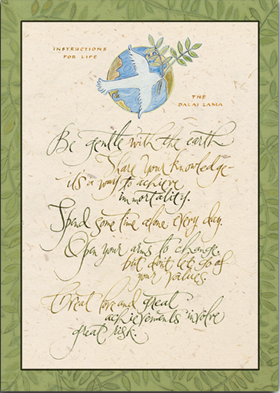 INSTRUCTIONS
FOR LIFE
THE
DALAI LAMA
Be gentle with the earth
Share your knowledge
it's a way to achieve
immortality.
Spend some time alone every day.
Open your arms to change,
but don't let go of
your values.
Great love and great
achievements involve
great risk.